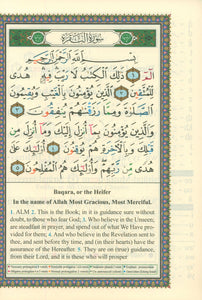 سورة البقرة
بسم الله الرحمن الرحيم
الٓمٓ ١ ذَٰلِكَ ٱلْكِتَٰبُ لَا رَيْبَ ۛ فِيهِ ۛ هُدًى
لِّلْمُتَّقِينَ ٢ ٱلَّذِينَ يُؤْمِنُونَ بِٱلْغَيْبِ وَيُقِيمُونَ
ٱلصَّلَوٰةَ وَمِمَّا رَزَقْنَٰهُمْ يُنفِقُونَ ٣
وَٱلَّذِينَ يُؤْمِنُونَ بِمَآ أُنزِلَ إِلَيْكَ وَمَآ أُنزِلَ
مِن قَبْلِكَ وَبِٱلْءَاخِرَةِ هُمْ يُوقِنُونَ ٤ أُو۟لَٰٓئِكَ
عَلَىٰ هُدًى مِّن رَّبِّهِمْ ۖ وَأُو۟لَٰٓئِكَ هُمُ ٱلْمُفْلِحُونَ ٥
Baqara, or the Heifer
In the name of Allah Most Gracious, Most Merciful.
1. ALM 2. This is the Book; in it is guidance sure without
doubt, to those who fear God; 3. Who believe in the Unseen,
are steadfast in prayer, and spend out of what We have Pro-
vided for them; 4. And who believe in the Revelation sent to
thee, and sent before thy time, and (in their hearts) have the
assurance of the Hereafter. 5. They are on (true) guidance,
from their Lord, and it is these who will prosper